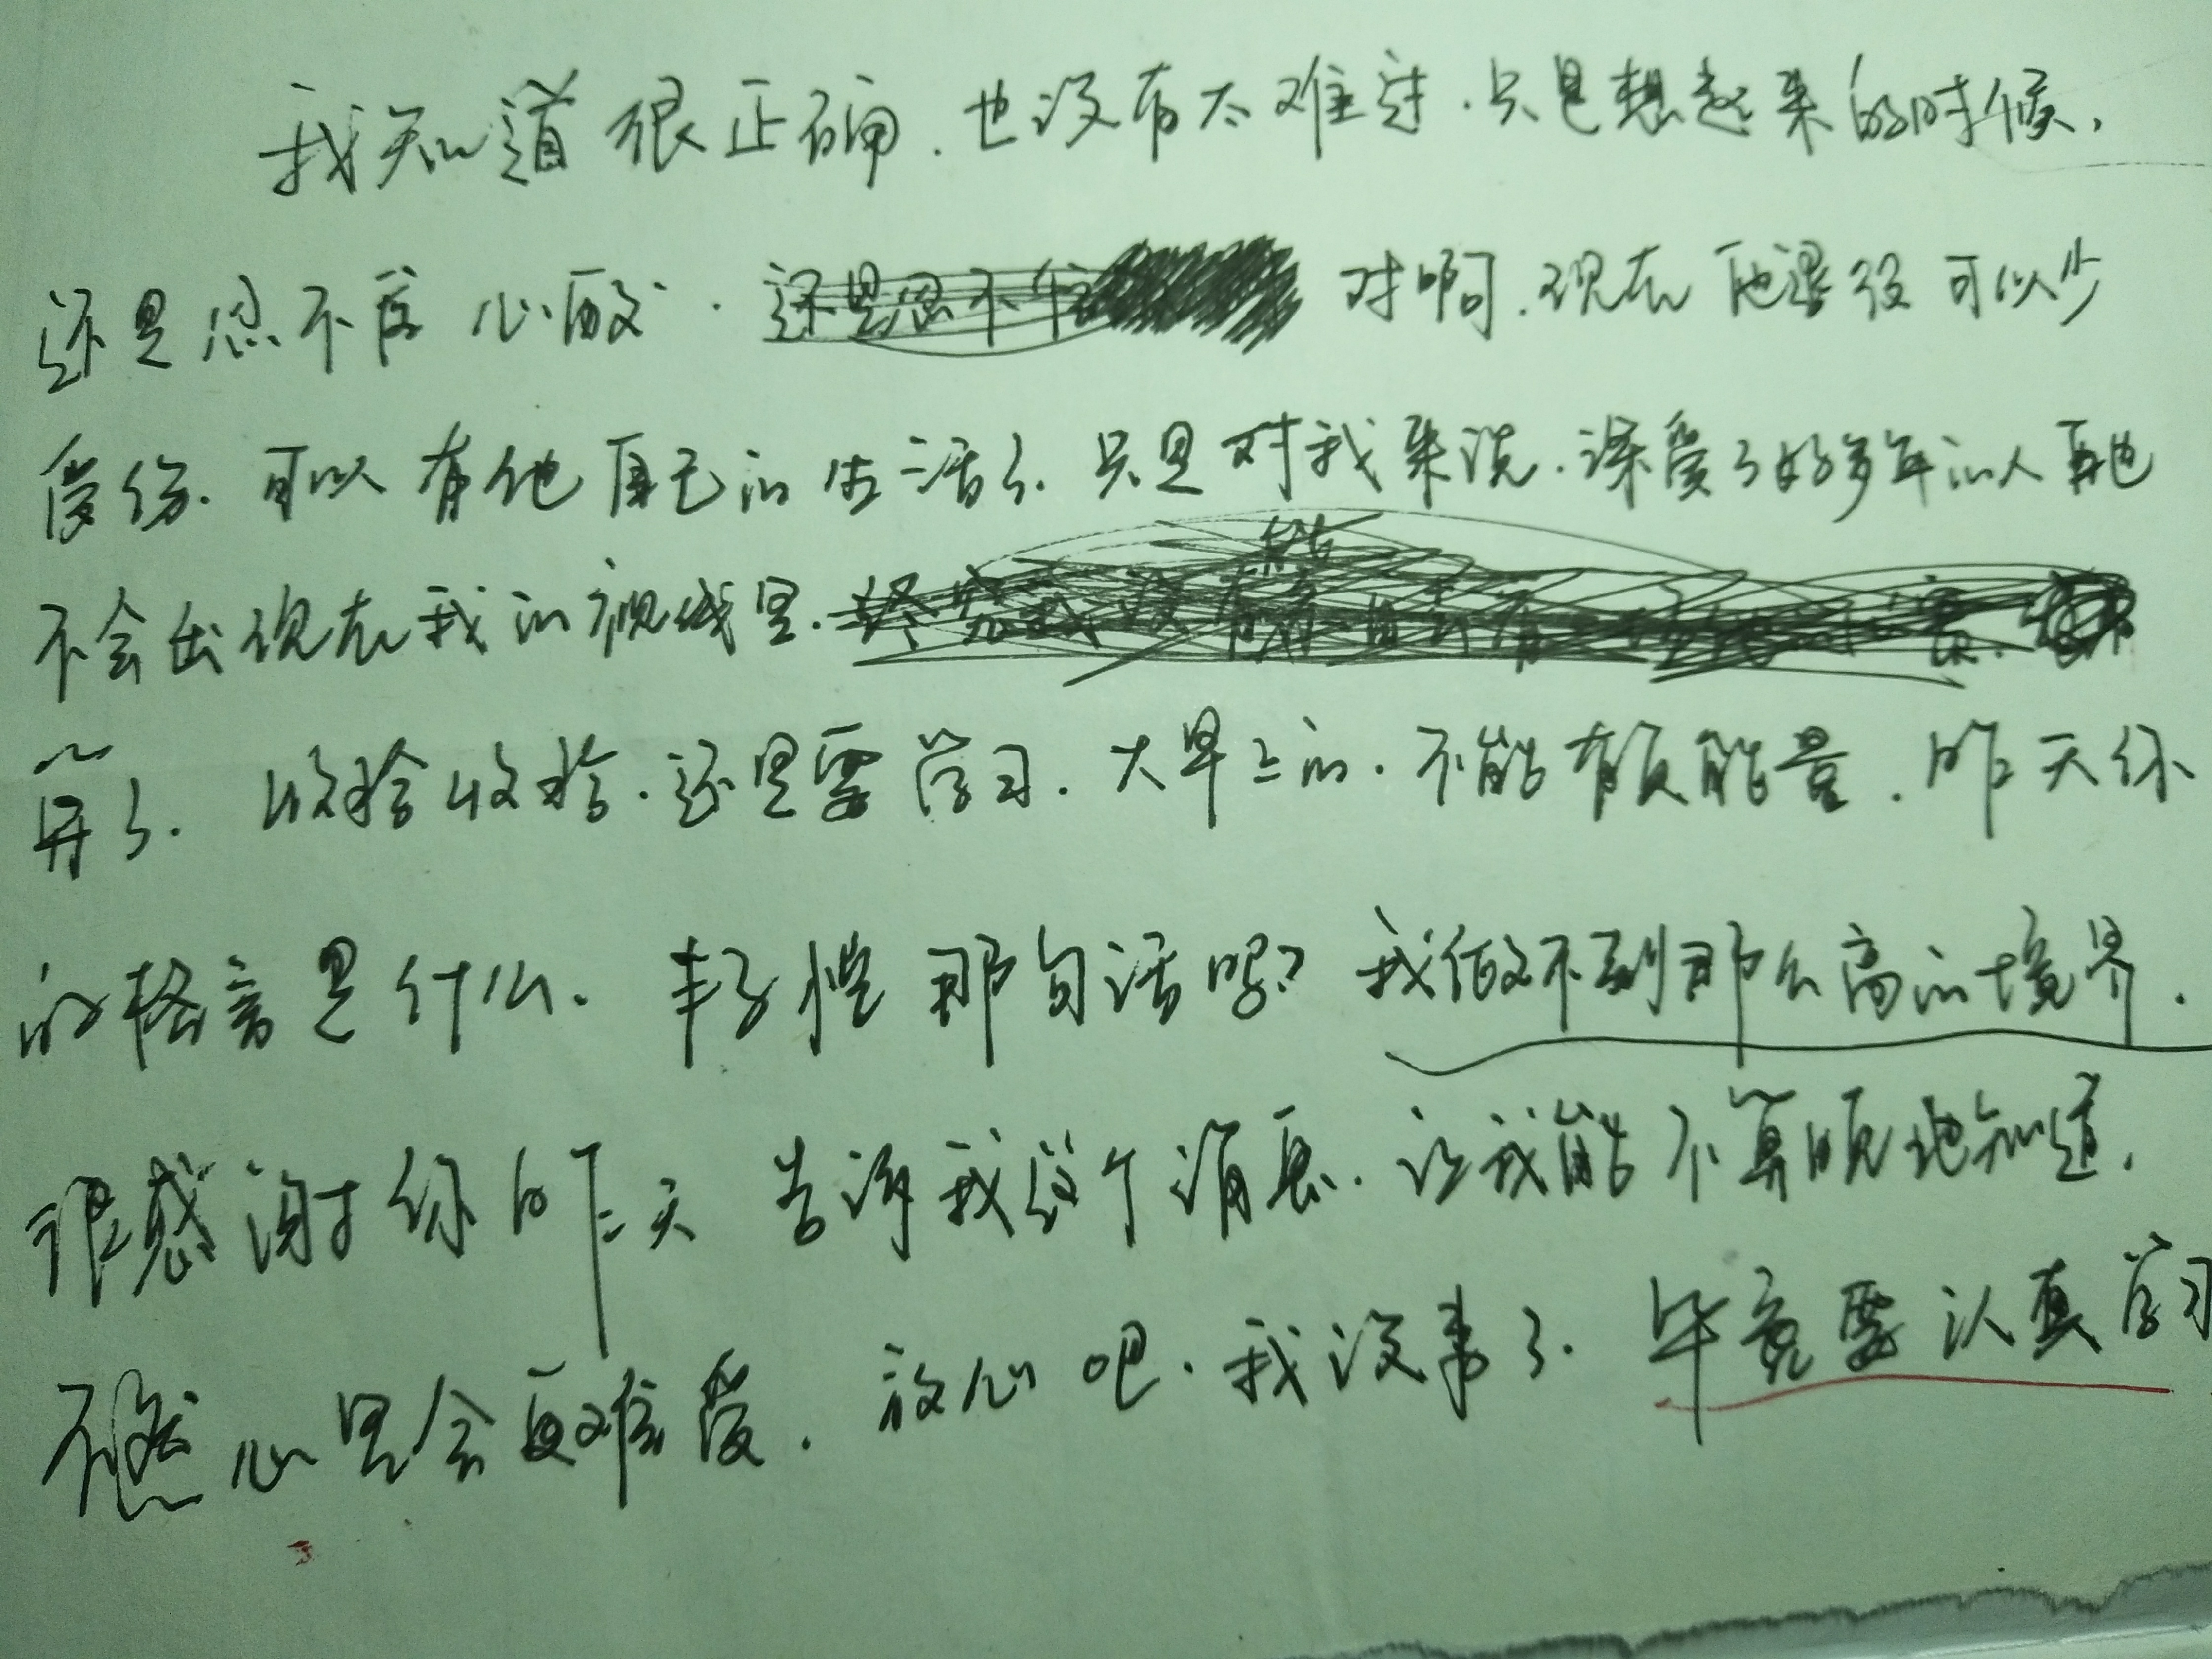 我知道很正确.也没有太难过.只是想起来的时候,
还是忍不住心酸.还是忍不住 对啊.现在他退役可以少
受伤.可以有他自己的生活了.只是对我来说.深爱了好多年的人再也
不会出现在我的视线里.
算了.收拾收拾.还是要学习.大早上的.不能有负能量.昨天你
的格言是什么.丰子恺那句话吗?我做不到那么高的境界.
很感谢你昨天告诉我这个消息.让我能不算晚地知道.
不然心里会更难受.放心吧.我没事了.毕竟要认真学习